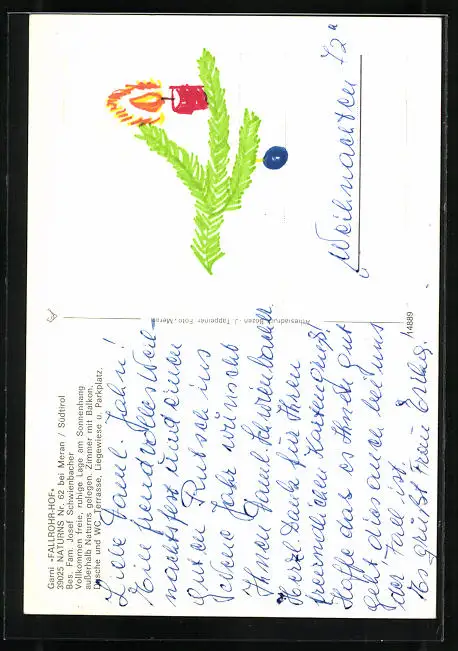 Garni »FALLROHR-HOF«
39025 NATURNS Nr. 62 bei Meran / Südtirol
Bes. Fam. Josef Schwienbacher
Vollkommen freie, ruhige Lage am Sonnenhang
außerhalb Naturns gelegen. Zimmer mit Balkon,
Dusche und WC, Terrasse, Liegewiese u. Parkplatz.
Liebe Famil. Jahn!
Ein freudvolles Weih-
nachtsfest und einen
guten Rutsch ins
neue Jahr wünscht
Ihnen Famil. Schwienbacher.
Herzl. Dank für Ihren
freundlichen Kartengruß!
Hoffe daß es Ihnen gut
geht, dies auch bei uns
der Fall ist.
Es grüßt Frau
Athesiadruck Bozen - J. Tappeiner Foto - Meran
14889
"Weihnachten 72"